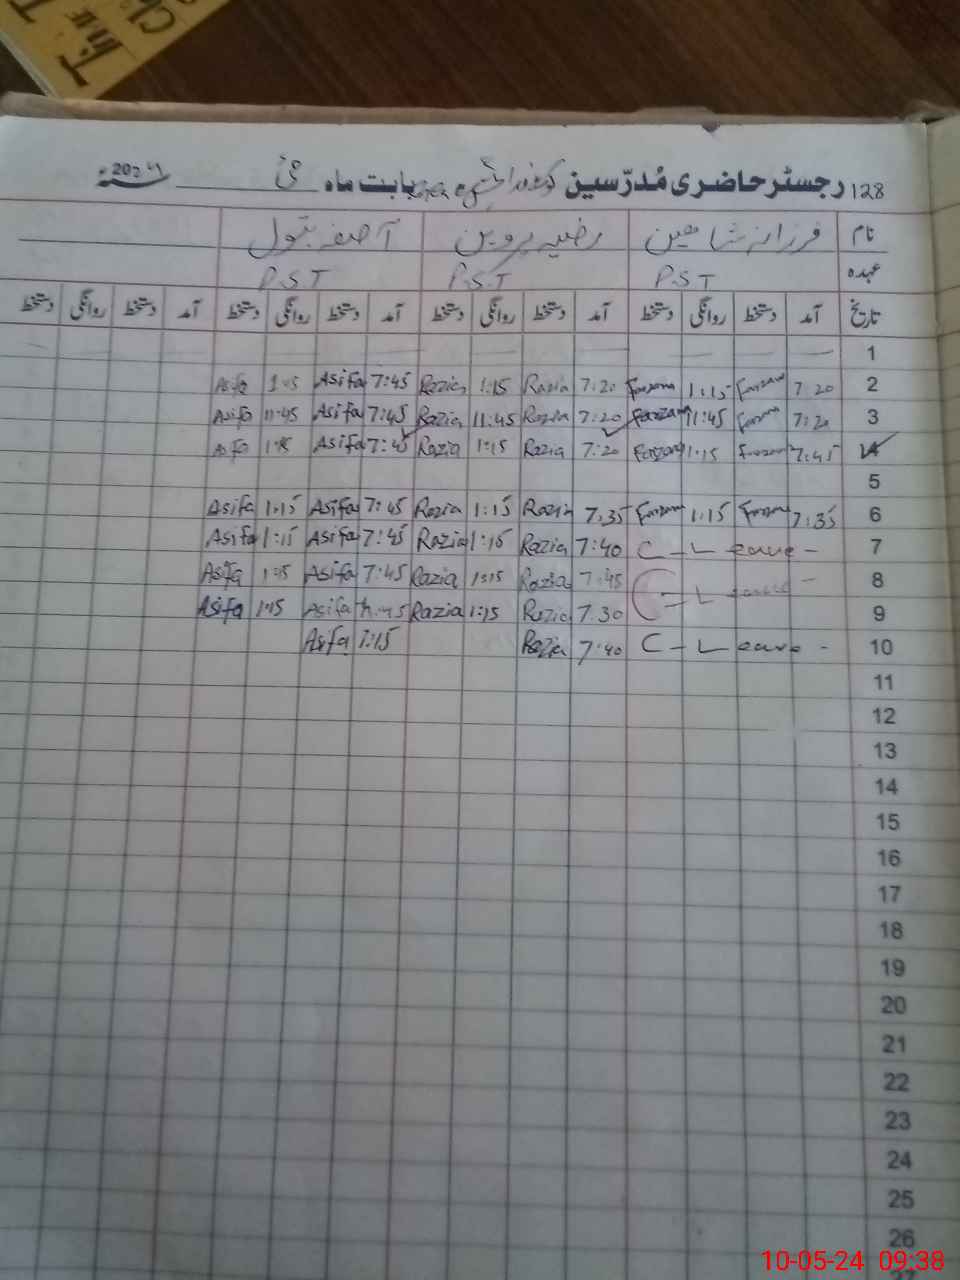 Time
128 رجسٹر حاضری مُدرّسین بابت ماہ مئی سنہ 2024
نام فرزانہ شاہین رضیہ پروین آصفہ بتول
عہدہ P.S.T P.S.T P.S.T
تاریخ آمد دستخط روانگی دستخط آمد دستخط روانگی دستخط آمد دستخط روانگی دستخط آمد دستخط روانگی دستخط
1
2 7:20 Farzana 1:15 Farzana 7:20 Razia 1:15 Razia 7:45 Asifa 1:15 Asifa
3 7:20 Farzana 11:45 Farzana 7:20 Razia 11:45 Razia 7:45 Asifa 11:45 Asifa
4 7:45 Farzana 1:15 Farzana 7:20 Razia 1:15 Razia 7:45 Asifa 1:15 Asifa
5
6 7:35 Farzana 1:15 Farzana 7:35 Razia 1:15 Razia 7:45 Asifa 1:15 Asifa
7 C-Leave- 7:40 Razia 1:15 Razia 7:45 Asifa 1:15 Asifa
8 C-Leave- 7:45 Razia 1:15 Razia 7:45 Asifa 1:15 Asifa
9 7:30 Razia 1:15 Razia 7:45 Asifa 1:15 Asifa
10 C-Leave- 7:40 Razia 1:15 Asifa
11
12
13
14
15
16
17
18
19
20
21
22
23
24
25
26
27
10-05-24 09:38